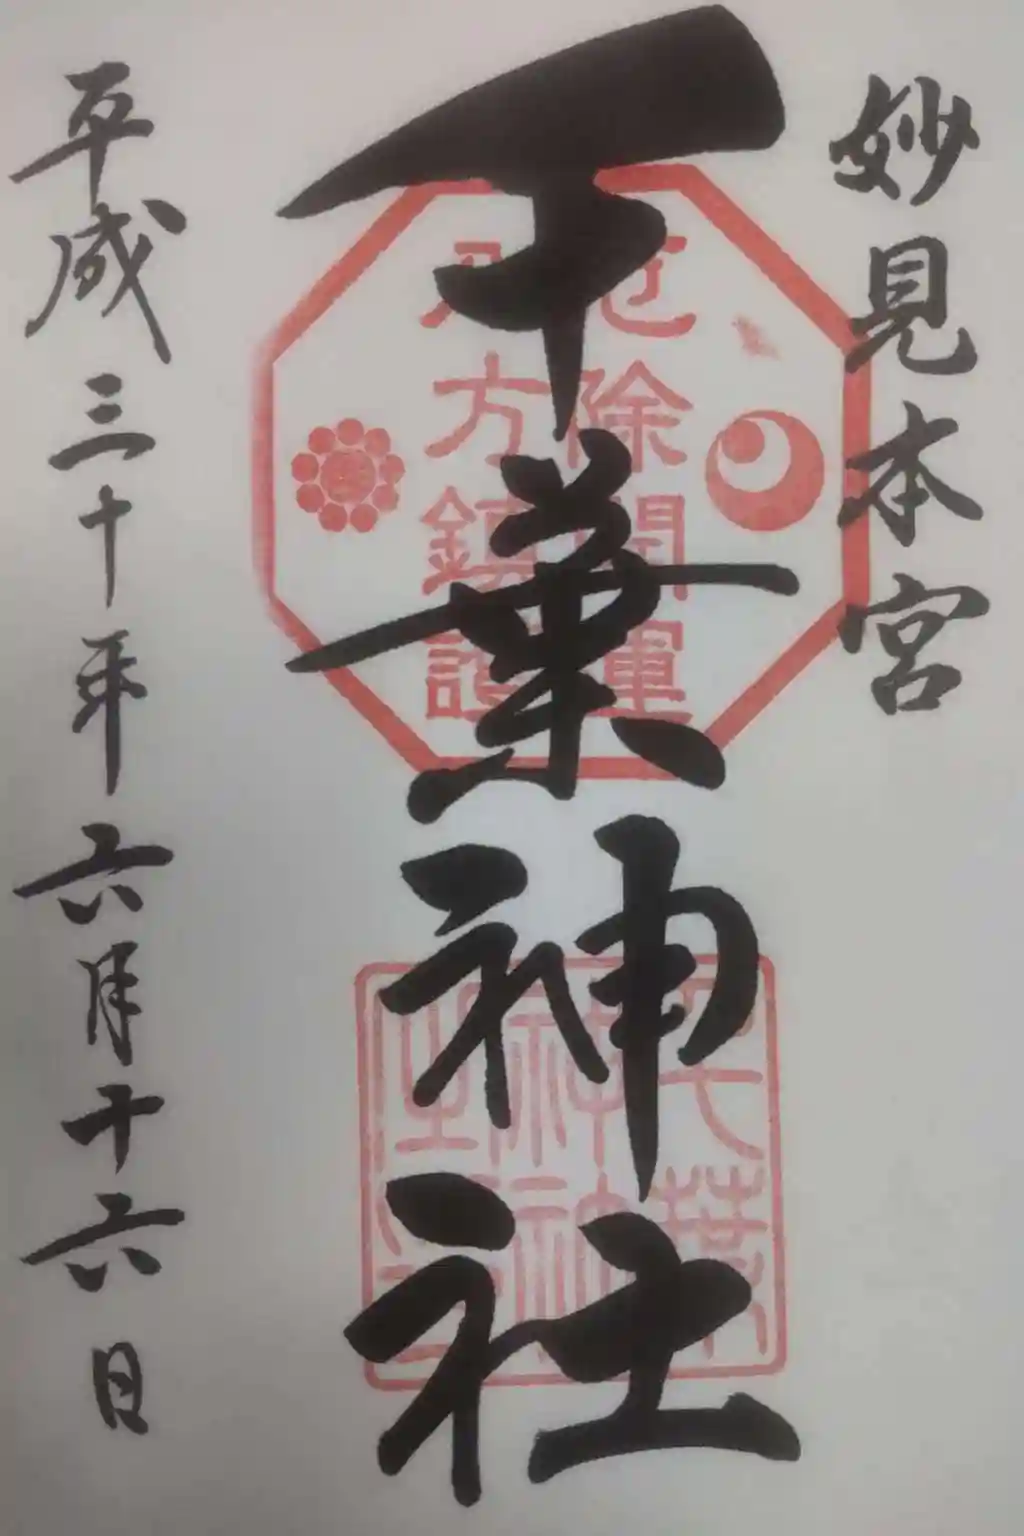 妙見本宮
千葉神社
平成三十年六月十六日
厄除開運
八方鎮護